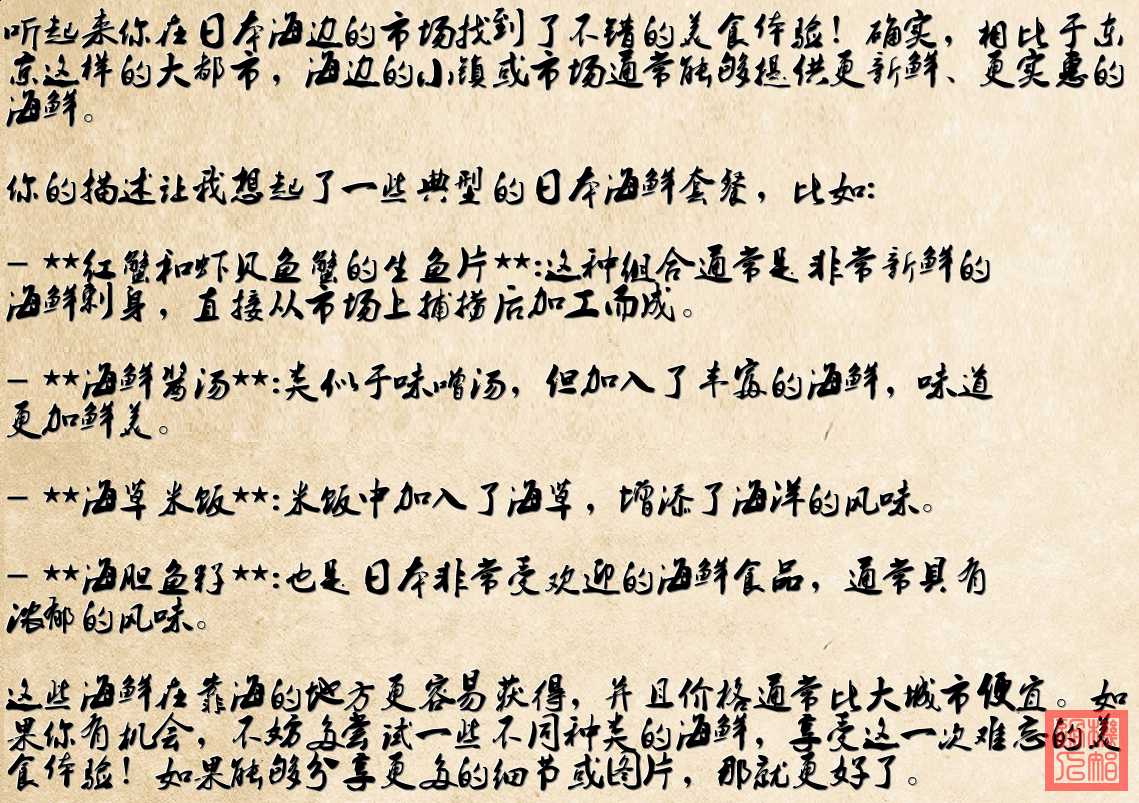 听起来你在日本海边的市场找到了不错的美食体验！确实，相比于东
京这样的大都市，海边的小镇或市场通常能够提供更新鲜、更实惠的
海鲜。
你的描述让我想起了一些典型的日本海鲜套餐，比如:
- **红蟹和虾贝鱼蟹的生鱼片**:这种组合通常是非常新鲜的
海鲜刺身，直接从市场上捕捞后加工而成。
- **海鲜酱汤**:类似于味噌汤，但加入了丰富的海鲜，味道
更加鲜美。
- **海草米饭**:米饭中加入了海草，增添了海洋的风味。
- **海胆鱼籽**:也是日本非常受欢迎的海鲜食品，通常具有
浓郁的风味。
这些海鲜在靠海的地方更容易获得，并且价格通常比大城市便宜。如
果你有机会，不妨多尝试一些不同种类的海鲜，享受这一次难忘的美
食体验！如果能够分享更多的细节或图片，那就更好了。